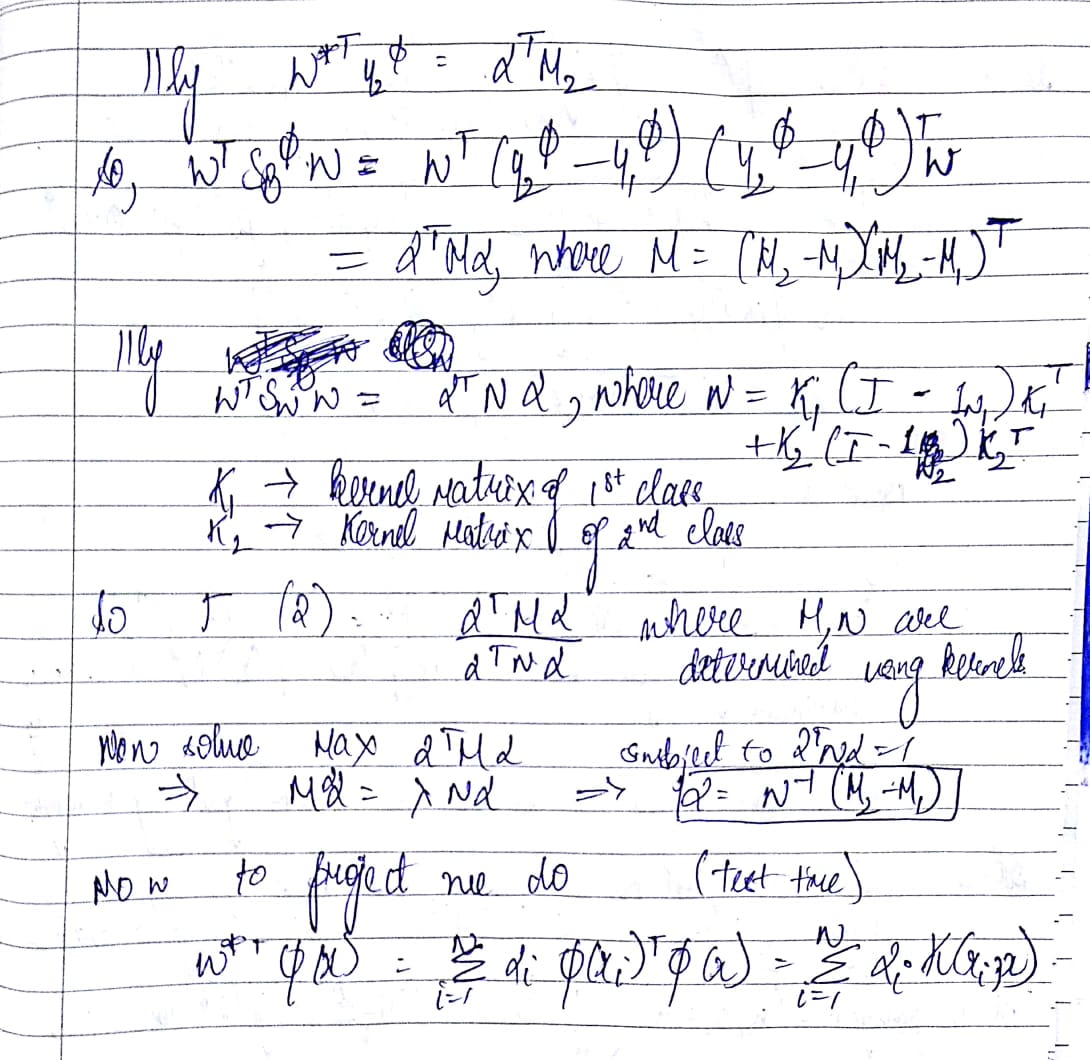 111ly W*ᵀ y₂^ϕ = αᵀM₂
So, Wᵀ S_B^ϕ W = Wᵀ (y₂^ϕ – y₁^ϕ) (y₂^ϕ – y₁^ϕ)ᵀ W
= αᵀMα, where M = (M₂ - M₁)(M₂ - M₁)ᵀ
111ly
WᵀS_W^ϕ W = αᵀ N α, where N = K₁ (I - 1_N₁) K₁ᵀ
+ K₂ (I - 1_N₂) K₂ᵀ
K₁ → kernel matrix of 1st class
K₂ → Kernel Matrix of 2nd class
So J (α) . . . αᵀMα / αᵀNα where M, N are
determined using kernels
Now solve Max αᵀMα subject to αᵀNα = 1
⇒ Mα = λ Nα ⇒ α = N⁻¹ (M₂ - M₁)
Now to project we do (test time)
W*ᵀ ϕ(x) = Σ_{i=1}^{N} αᵢ ϕ(xᵢ)ᵀ ϕ(x) = Σ_{i=1}^{N} αᵢ K(xᵢ, x)